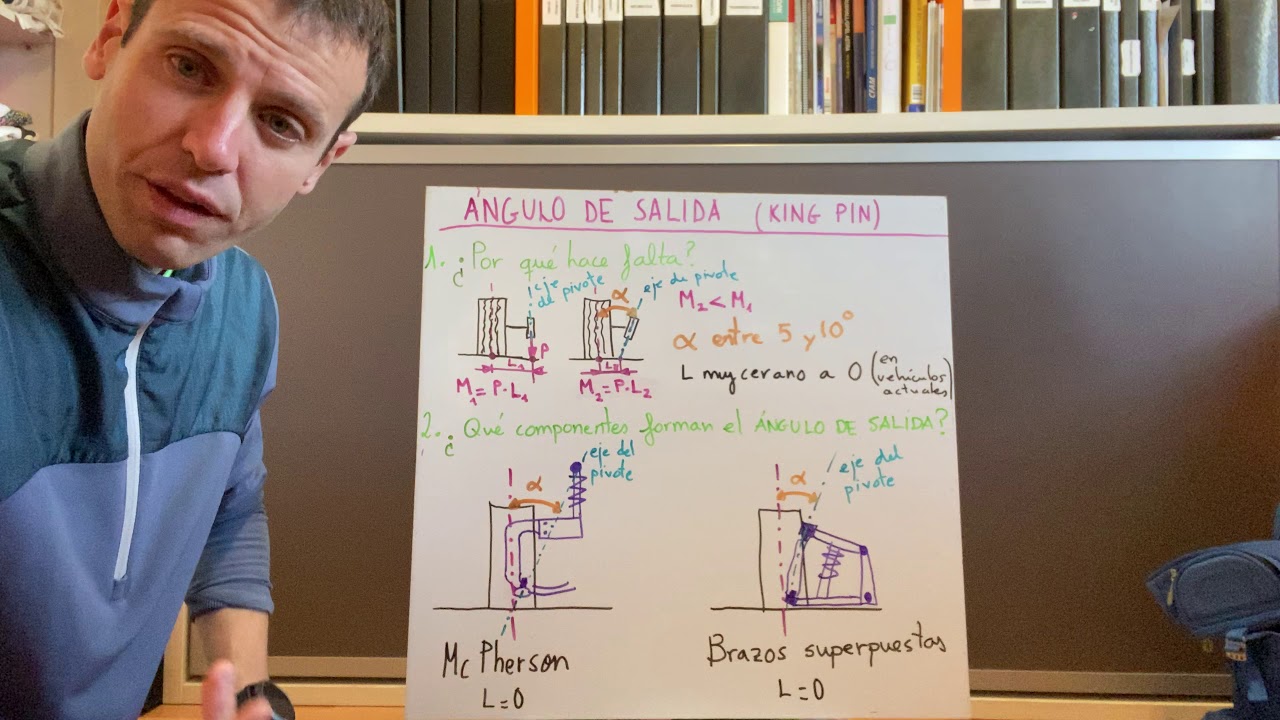 ÁNGULO DE SALIDA (KING PIN)
1. ¿Por qué hace falta?
eje de pivote
α
eje de pivote
M₂ < M₁
α entre 5 y 10°
L muy cerano a 0 (en vehículos actuales)
P
L₁
M₁ = P·L₁
L₂
M₂ = P·L₂
2. ¿Qué componentes forman el ÁNGULO DE SALIDA?
α
eje del
pivote
α
eje del
pivote
Mc Pherson
L=0
Brazos superpuestos
L=0